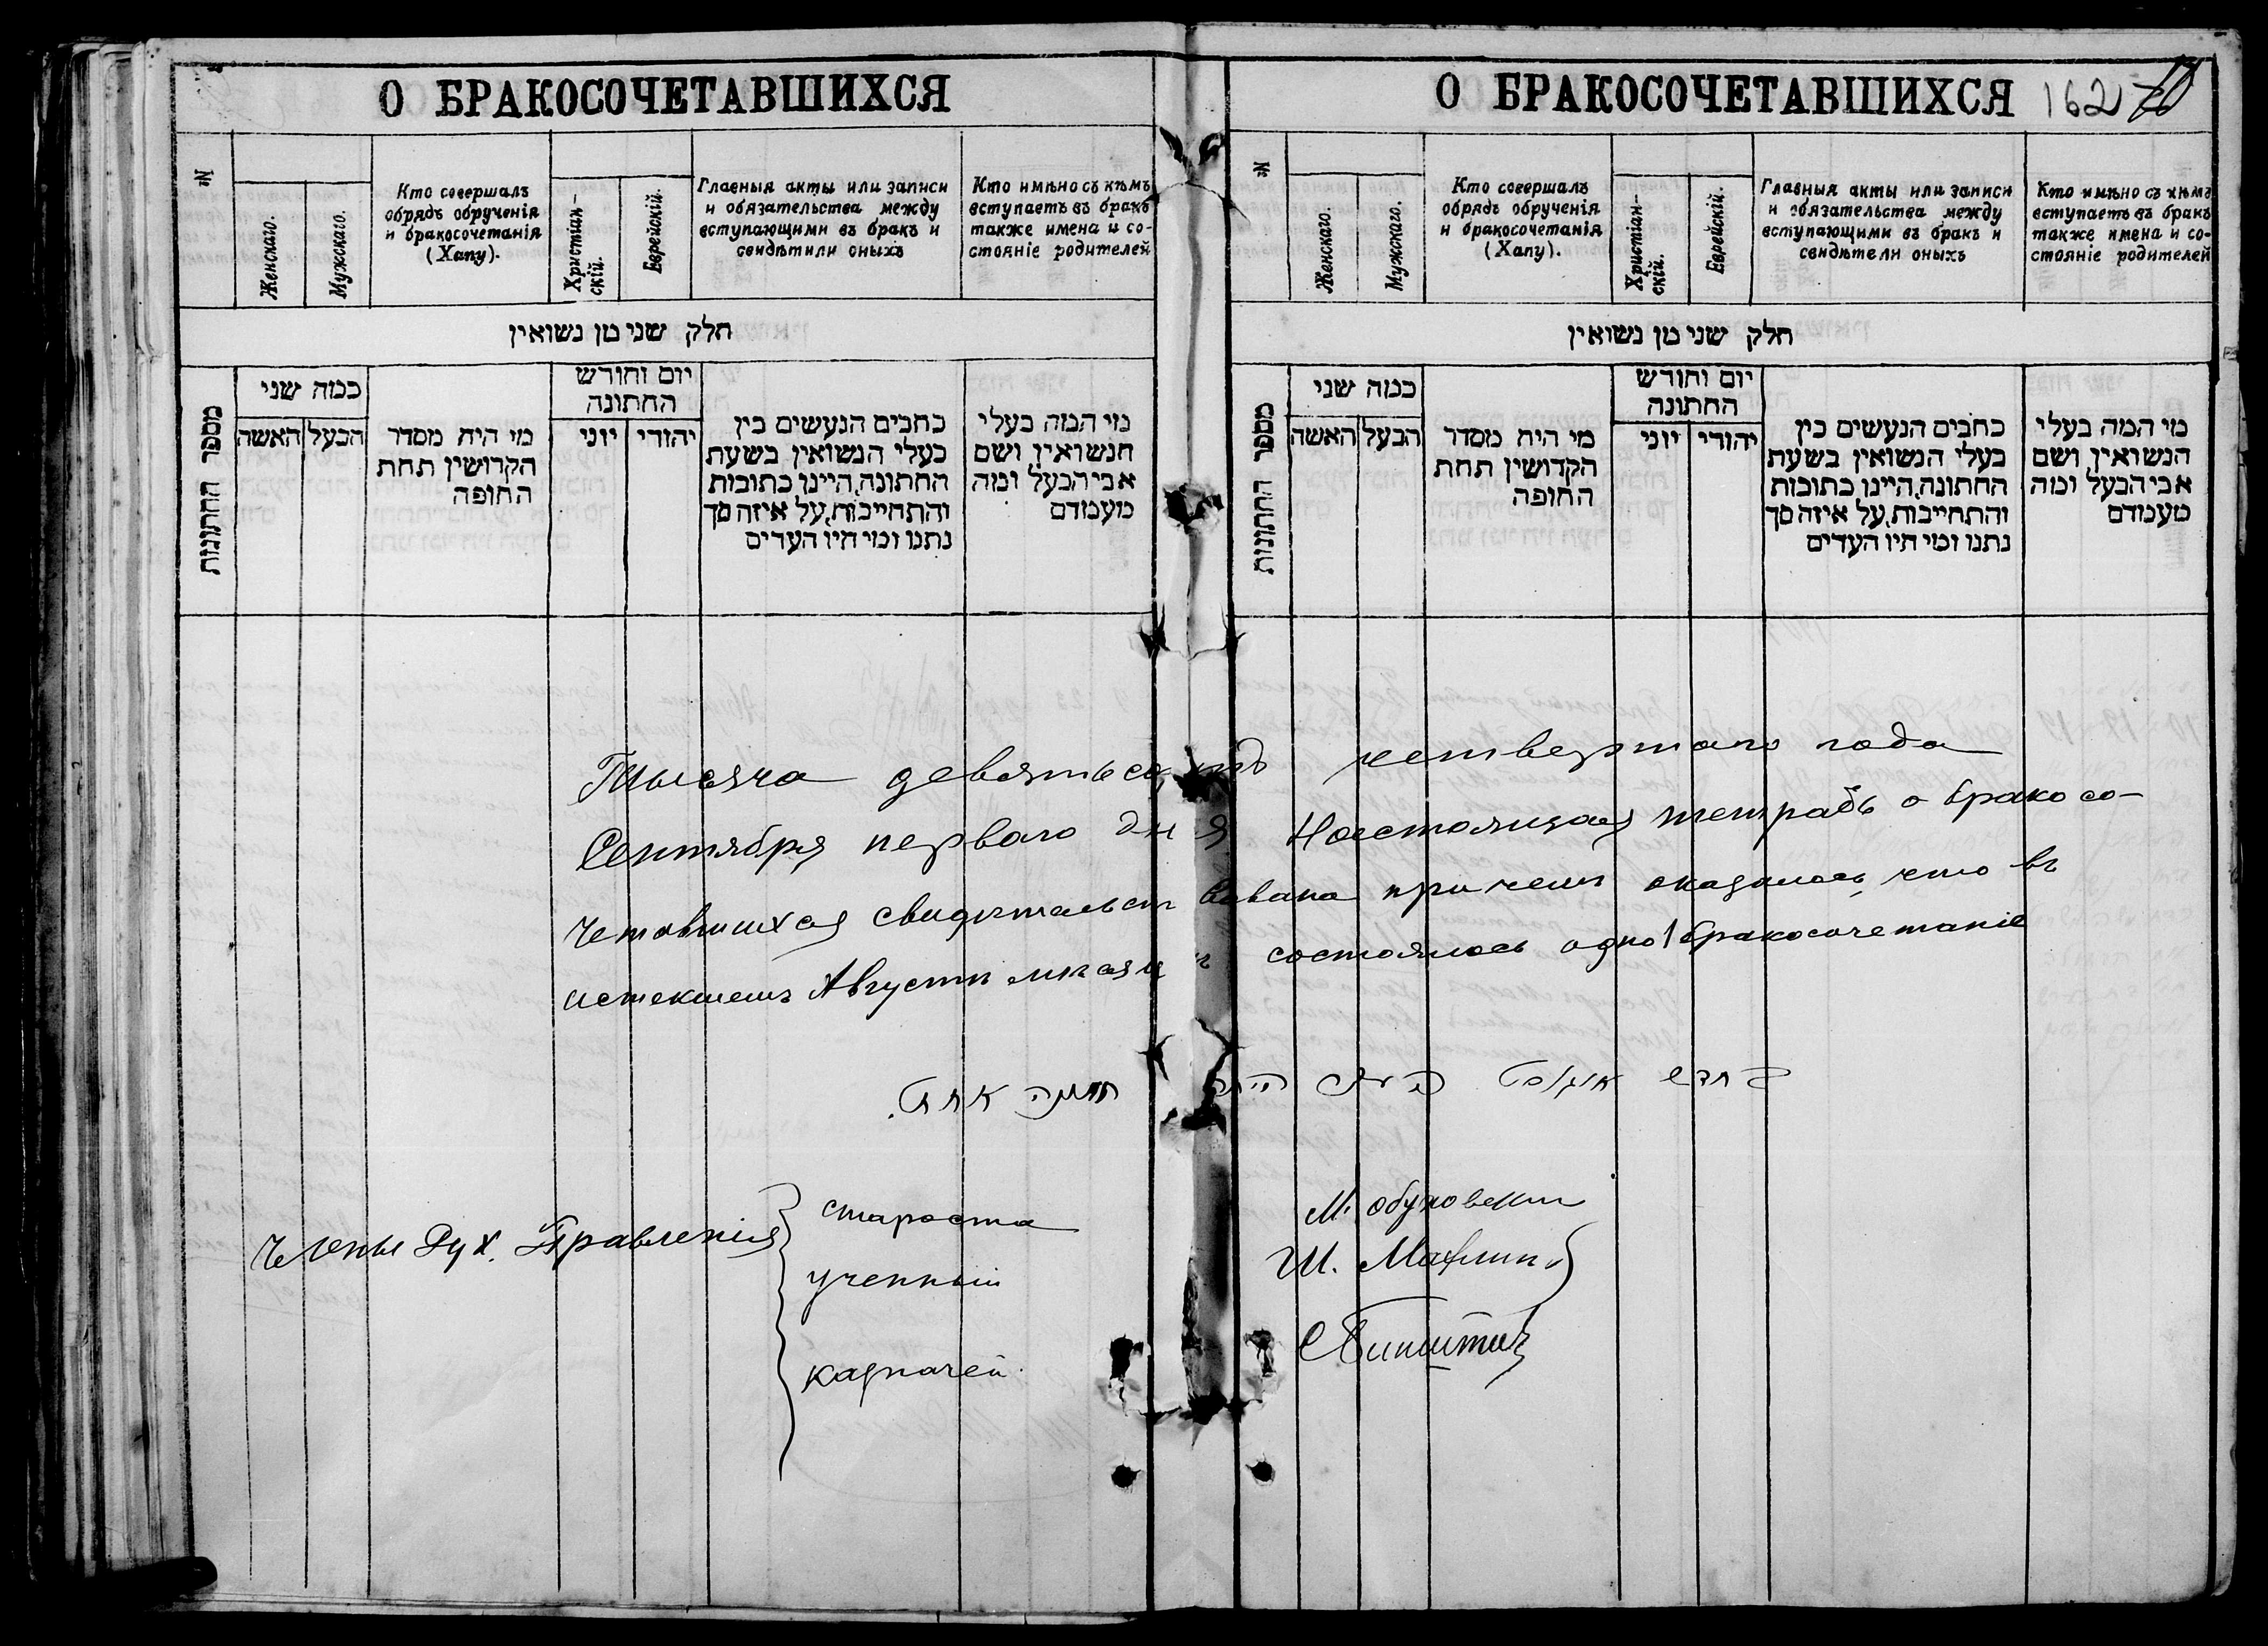 О БРАКОСОЧЕТАВШИХСЯ
№
Женскаго.
Мужскаго.
Кто совершалъ
обрядъ обрученія
и бракосочетанія
(Хапу).
Христіан-
скій.
Еврейскій.
Главныя акты или записи
и обязательства между
вступающими въ бракъ и
свидѣтили оныхъ
Кто имѣно съ кѣмъ
вступаетъ въ бракъ
также имена и со-
стояніе родителей
חלק שני מן נשואין
מספר החתונות
כמה שני
האשה
הבעל
מי היה מסדר
הקדושין תחת
החופה
יום וחודש
החתונה
יוני
יהודי
כתבים הנעשים בין
בעלי הנשואין בשעת
החתונה, היינו כתובות
והתחייבות, על איזה סך
נתנו ומי היו העדים
מי המה בעלי
הנשואין ושם
אבי הבעל ומה
מעמדם
О БРАКОСОЧЕТАВШИХСЯ 162
№
Женскаго.
Мужскаго.
Кто совершалъ
обрядъ обрученія
и бракосочетанія
(Хапу).
Христіан-
скій.
Еврейскій.
Главныя акты или записи
и обязательства между
вступающими въ бракъ и
свидѣтели оныхъ
Кто имѣно съ кѣмъ
вступаетъ въ бракъ
также имена и со-
стояніе родителей
חלק שני מן נשואין
מספר החתונות
כמה שני
האשה
הבעל
מי היה מסדר
הקדושין תחת
החופה
יום וחודש
החתונה
יוני
יהודי
כתבים הנעשים בין
בעלי הנשואין בשעת
החתונה, היינו כתובות
והתחייבות, על איזה סך
נתנו ומי היו העדים
מי המה בעלי
הנשואין ושם
אבי הבעל ומה
מעמדם
Тысяча девятьсотъ четвертаго года
Сентября перваго дня Настоящая тетрадь о бракосо-
четовшихся свидѣтельствована причемъ оказалось, что въ
истекшемъ Августѣ мѣсяцѣ состоялось одно 1 бракосочетаніе
בחדש אוגוסט היתה חתונה אחת.
Члены Дух. Правленія
староста М. Обуховскій
ученный Ш.
казначей